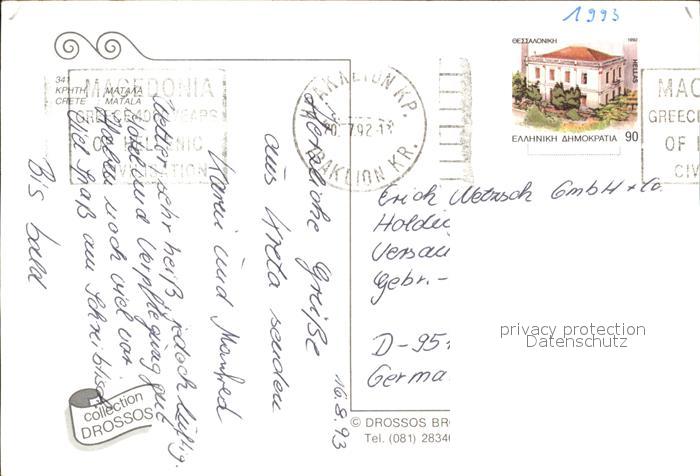 1993
341
ΚΡΗΤΗ ΜΑΤΑΛΑ
CRETE MATALA
MACEDONIA
GREECE 4000 YEARS
OF HELLENIC
CIVILISATION
ΗΡΑΚΛΕΙΟΝ ΚΡ.
7.92
IRAKLION KR.
ΘΕΣΣΑΛΟΝΙΚΗ
1992
HELLAS
ΕΛΛΗΝΙΚΗ ΔΗΜΟΚΡΑΤΙΑ 90
MAC
GREECE
OF
CIV
16.8.93
Herzliche Grüße
aus Kreta senden
Karin und Manfred
Wetter sehr heiß, jedoch luftig.
Hotel und Verpflegung gut
Haben noch viel vor
Viel Spaß am Schreibtisch
Bis bald
Erich Netzsch GmbH + Co.
Holdi
Gebr. -
D-95
Germa
privacy protection
Datenschutz
collection
DROSSOS
© DROSSOS BR
Tel. (081) 2834